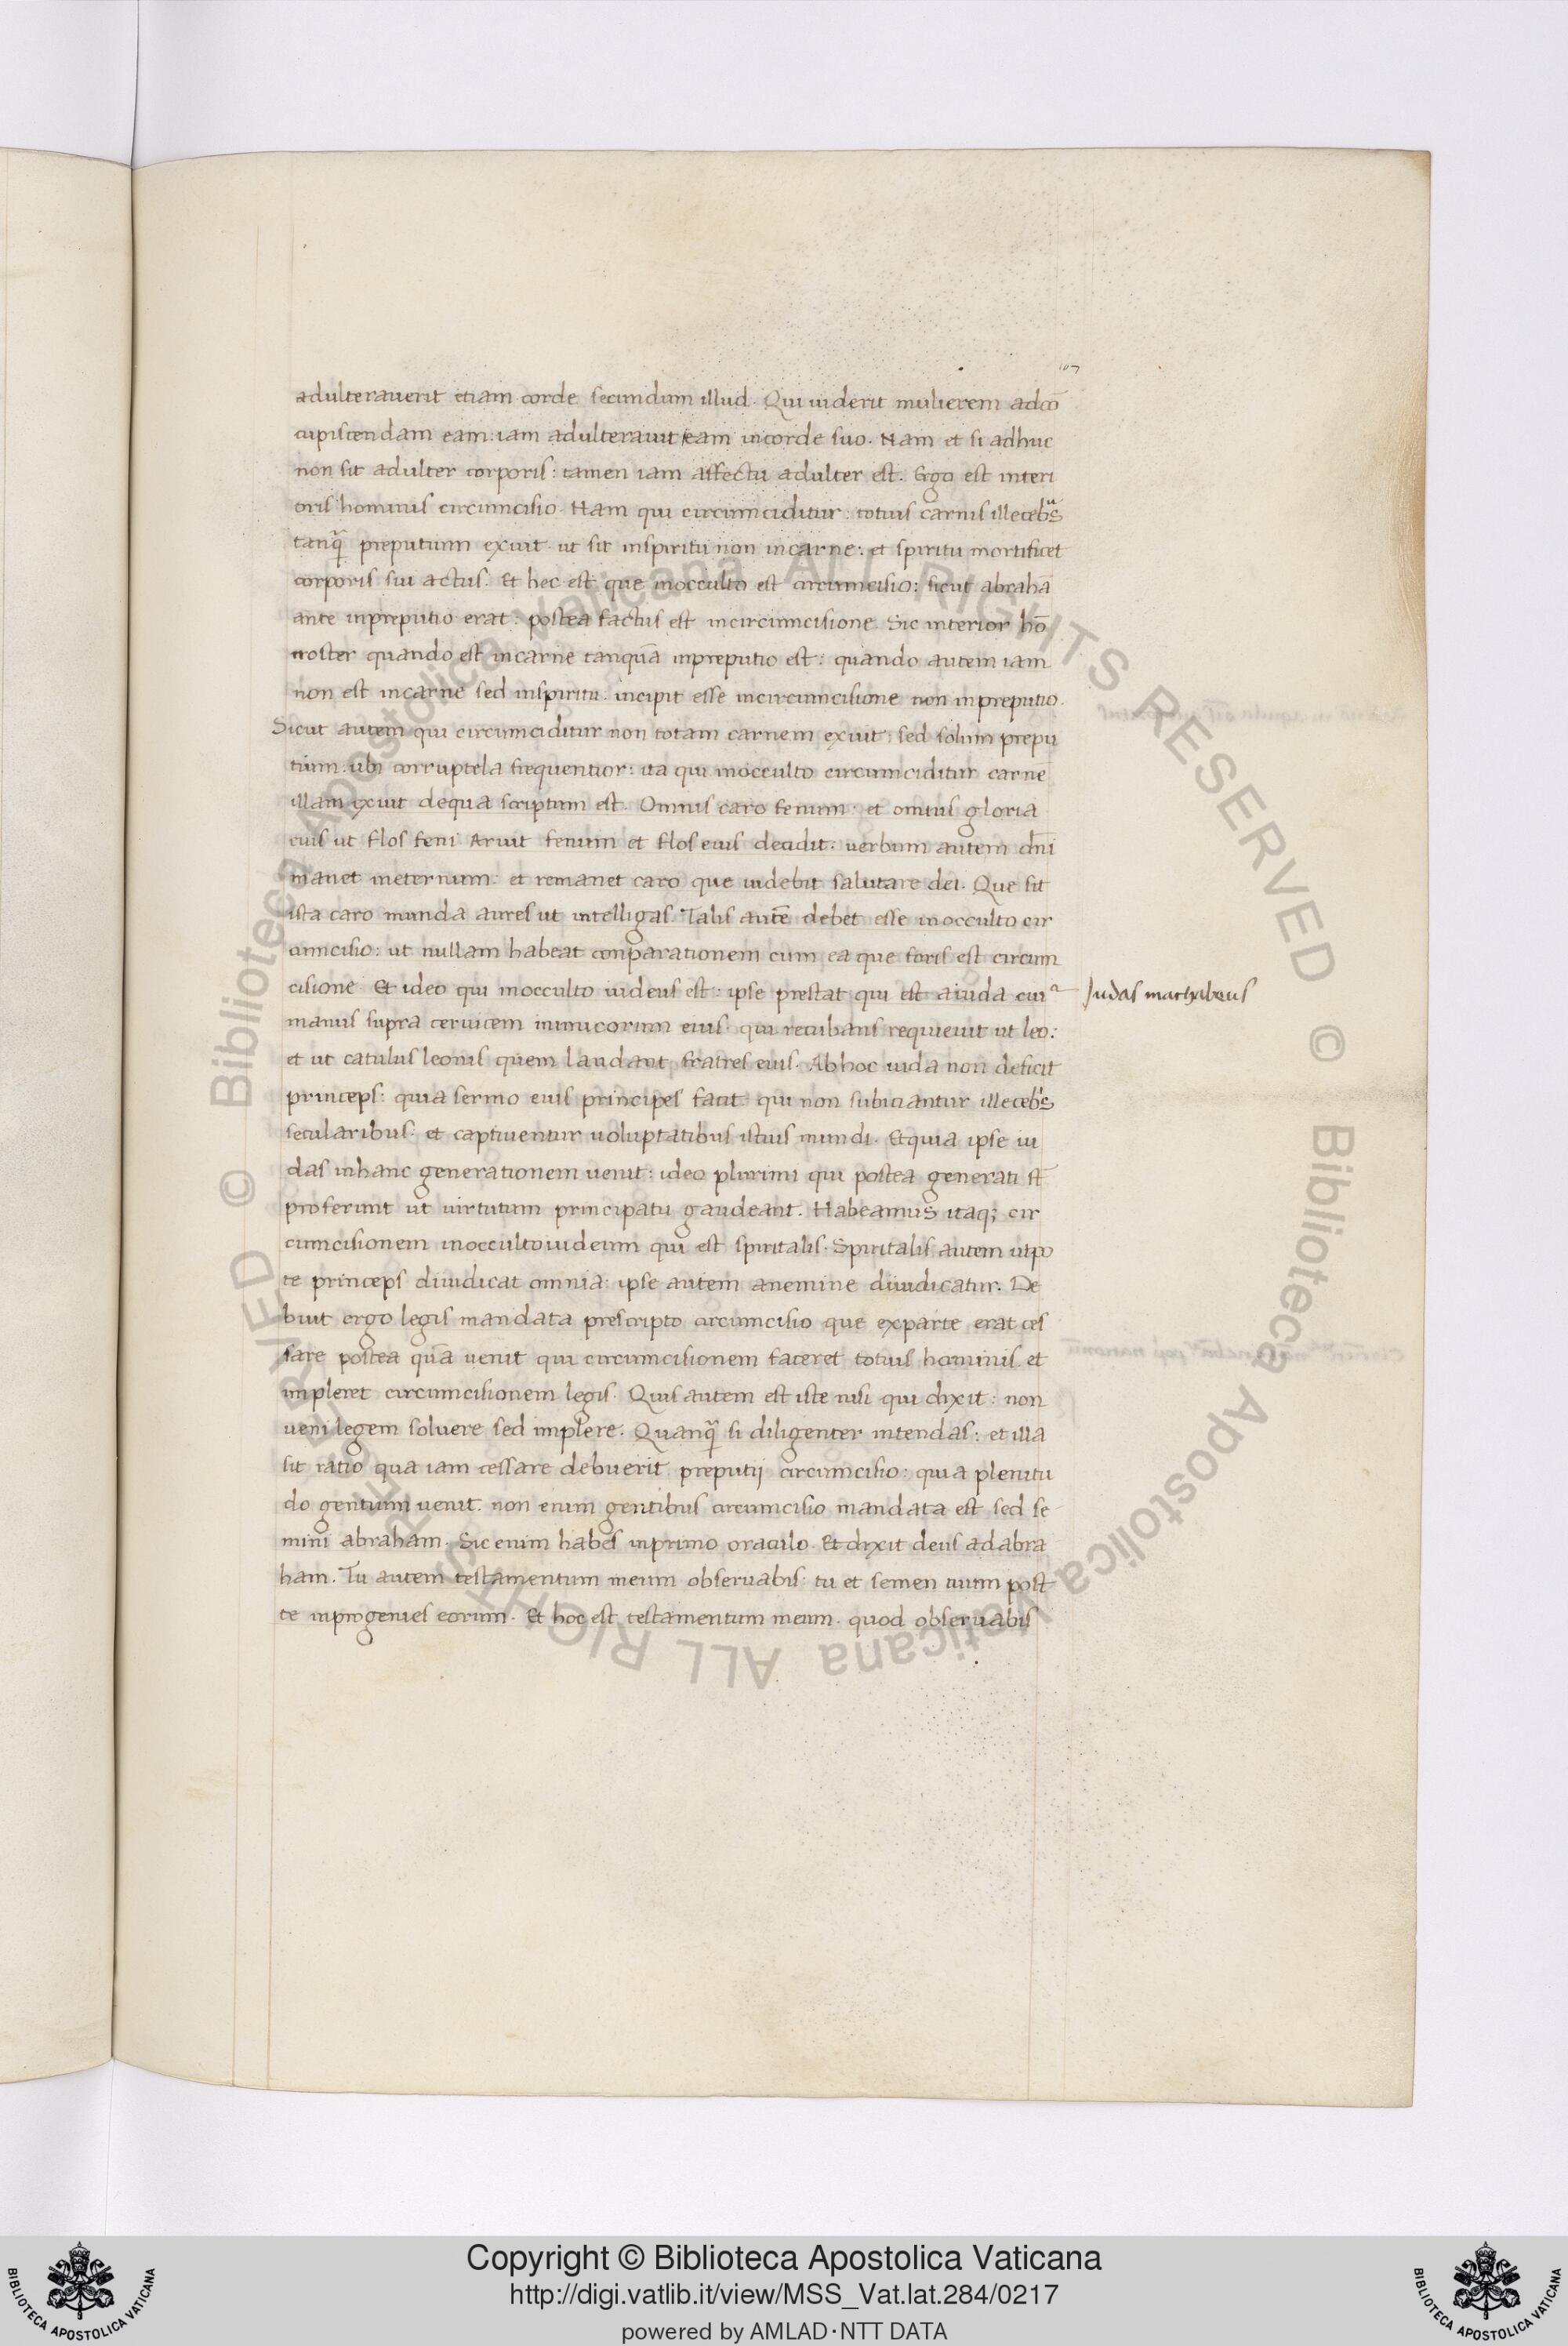 107
adulterauerit etiam corde secundum illud. Qui uiderit mulierem adcō
cupiscendam eam: iam adulterauit eam incorde suo. Nam et si adhuc
non sit adulter corporis: tamen iam affectu adulter est. Ergo est interi
oris hominis circumcisio. Nam qui circumciditur: totius carnis illecebˢ
tanq̃ preputium exiuit ut sit inspiritu non incarne: et spiritu mortificet
corporis sui actus. Et hec est que inocculto est circumcisio: sicut abrahā
ante inpreputio erat: postea factus est incircumcisione. Sic interior hō
noster quando est incarne tanquā inpreputio est: quando autem iam
non est incarne sed inspiritu. incipit esse incircumcisione non inpreputio.
Sicut autem qui circumciditur non totam carnem exiuit: sed solum prepu
tium. ubi corruptela frequentior: ita qui inocculto circumciditur carnē
illam exiuit dequa scriptum est. Omnis caro fenum. et omnis gloria
eius ut flos feni Aruit fenum et flos eius decidit. uerbum autem dn̄i
manet ineternum: et remanet caro que uidebit salutare dei. Que sit
ista caro munda aures ut intelligas. Talis autē debet esse inocculto cir
cumcisio: ut nullam habeat conparationem cum ea que foris est circum
cisione. Et ideo qui inocculto iudeus est: ipse prestat qui est aiuda cuiᵃ
Judas machabeus
manus supra ceruicem inimicorum eius. qui recubans requieuit ut leo:
et ut catulus leonis quem laudant fratres eius. Abhoc iuda non deficit
princeps: quia sermo eius principes facit qui non subiciantur illecebˢ
secularibus. et captiuentur uoluptatibus istius mundi. Etquia ipse iu
das inhanc generationem uenit: ideo plurimi qui postea generati st̄
proferunt ut uirtutum principatu gaudeant. Habeamus itaq; cir
cumcisionem inoccultoiudeum qui est spiritalis. Spiritalis autem utpo
te princeps diiudicat omnia: ipse autem anemine diiudicatur. De
buit ergo legis mandata prescripto circumcisio que exparte erat ces
sare postea quā uenit qui circumcisionem faceret totius hominis. et
impleret circumcisionem legis. Quis autem est iste nisi qui dixit: non
ueni legem soluere sed implere. Quanq̃ si diligenter intendas: et illa
sit ratio qua iam cessare debuerit preputij circumcisio: quia plenitu
do gentium uenit. non enim gentibus circumcisio mandata est sed se
mini abraham. Sic enim habes inprimo oraculo. Et dixit deus adabra
ham. Tu autem testamentum meum obseruabis tu et semen tuum post
te inprogenies eorum. Et hoc est testamentum meum. quod obseruabis
© Biblioteca Apostolica Vaticana ALL RIGHTS RESERVED © Biblioteca Apostolica Vaticana ALL RIGHTS RESERVED
Copyright © Biblioteca Apostolica Vaticana
http://digi.vatlib.it/view/MSS_Vat.lat.284/0217
powered by AMLAD·NTT DATA
BIBLIOTECA APOSTOLICA VATICANA
BIBLIOTECA APOSTOLICA VATICANA